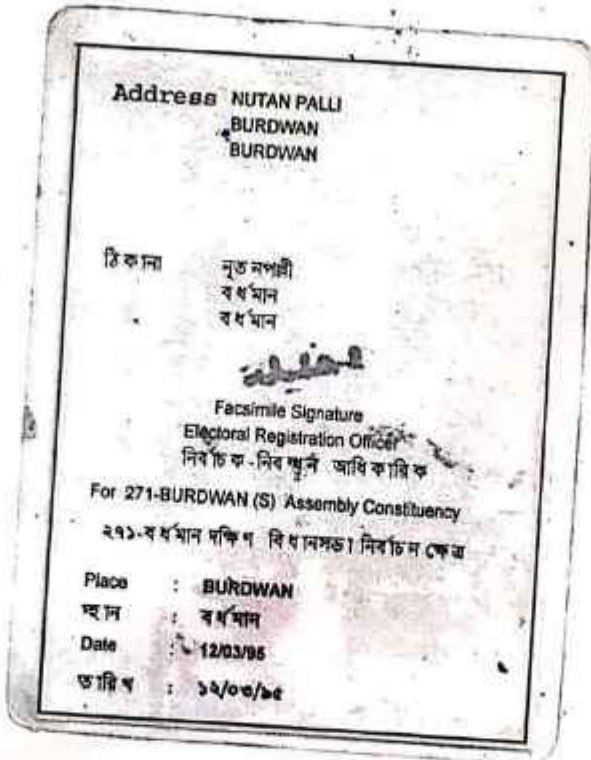 Address NUTAN PALLI
BURDWAN
BURDWAN
ঠিকানা নূতনপল্লী
বর্ধমান
বর্ধমান
Facsimile Signature
Electoral Registration Officer
নির্বাচক-নিবন্ধন আধিকারিক
For 271-BURDWAN (S) Assembly Constituency
২৭১-বর্ধমান দক্ষিণ বিধানসভা নির্বাচন ক্ষেত্র
Place : BURDWAN
স্থান : বর্ধমান
Date : 12/03/95
তারিখ : ১২/০৩/৯৫